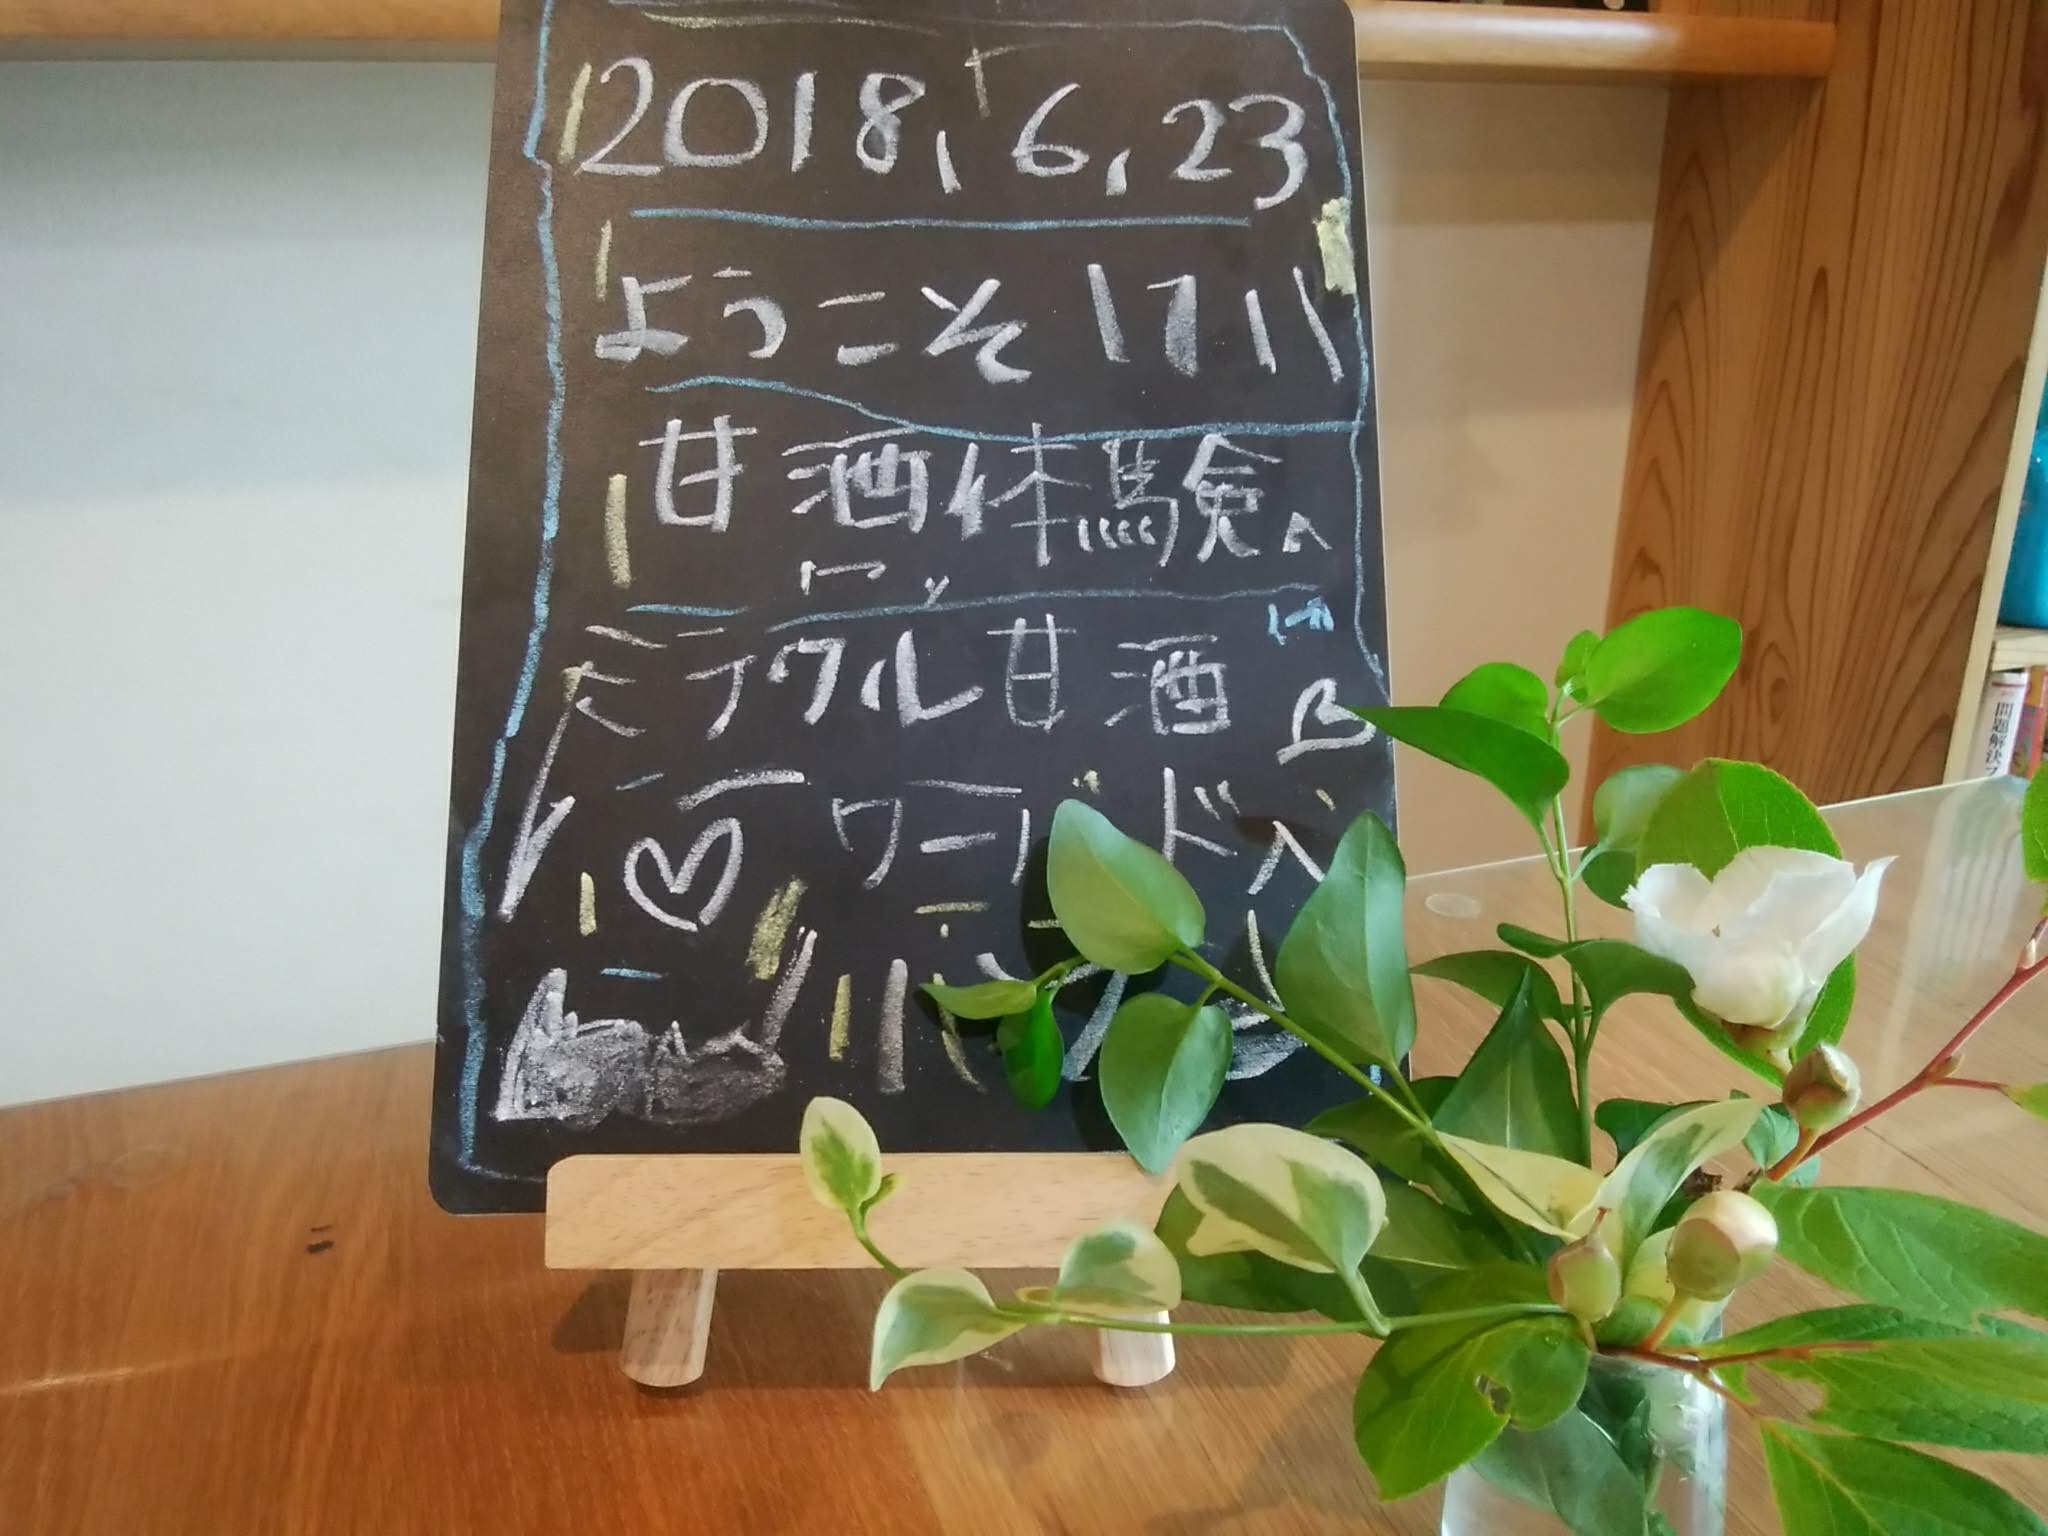 2018.6.23
ようこそ
甘酒体験 A
ミラクル甘酒 B
ワールドへ
問題解決